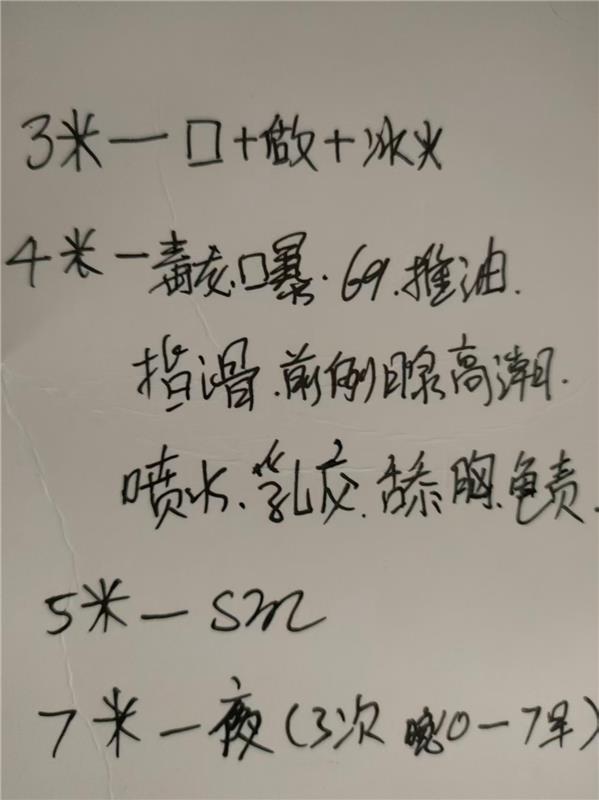 3米一口+做+冰火
4米一毒龙.口爆.69.推油.
指滑.前列腺高潮.
喷水.乳交.舔胸.
5米一SM
7米一夜(3次 晚10-7早)